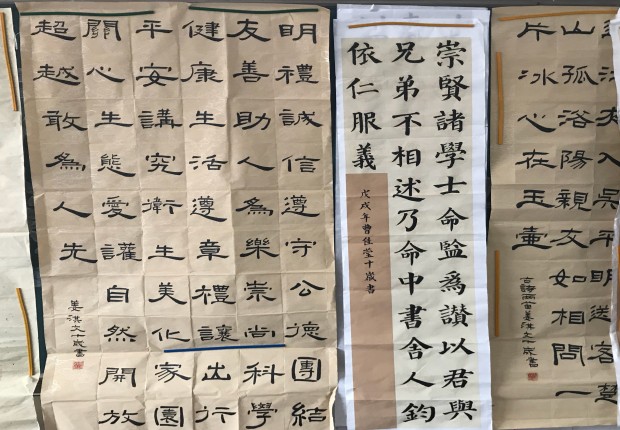 連江夜入吳平明送客楚
山孤洛陽親友如相問一
片冰心在玉壺
古詩兩首姜淇文十歲書
崇賢諸學士命監爲讃以君與
兄弟不相述乃命中書舍人鈞
依仁服義
戊戌年曹佳瑩十歲書
明禮誠信遵守公德團結
友善助人爲樂崇尚科學
健康生活遵章禮讓出行
平安講究衛生美化家園
關心生態愛護自然開放
超越敢爲人先
姜淇文十歲書